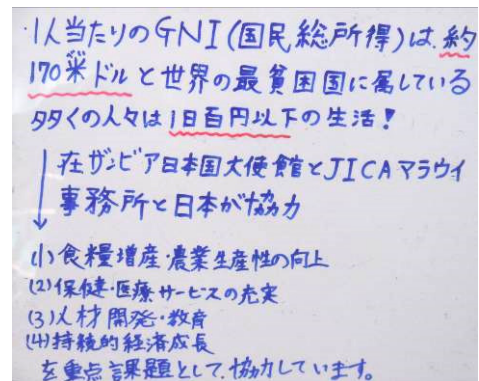 ・1人当たりのGNI(国民総所得)は、約
170米ドルと世界の最貧困国に属している
多くの人々は1日百円以下の生活!
在ザンビア日本国大使館とJICAマラウイ
事務所と日本が協力
(1)食糧増産・農業生産性の向上
(2)保健・医療サービスの充実
(3)人材開発・教育
(4)持続的経済成長
を重点課題として、協力しています。